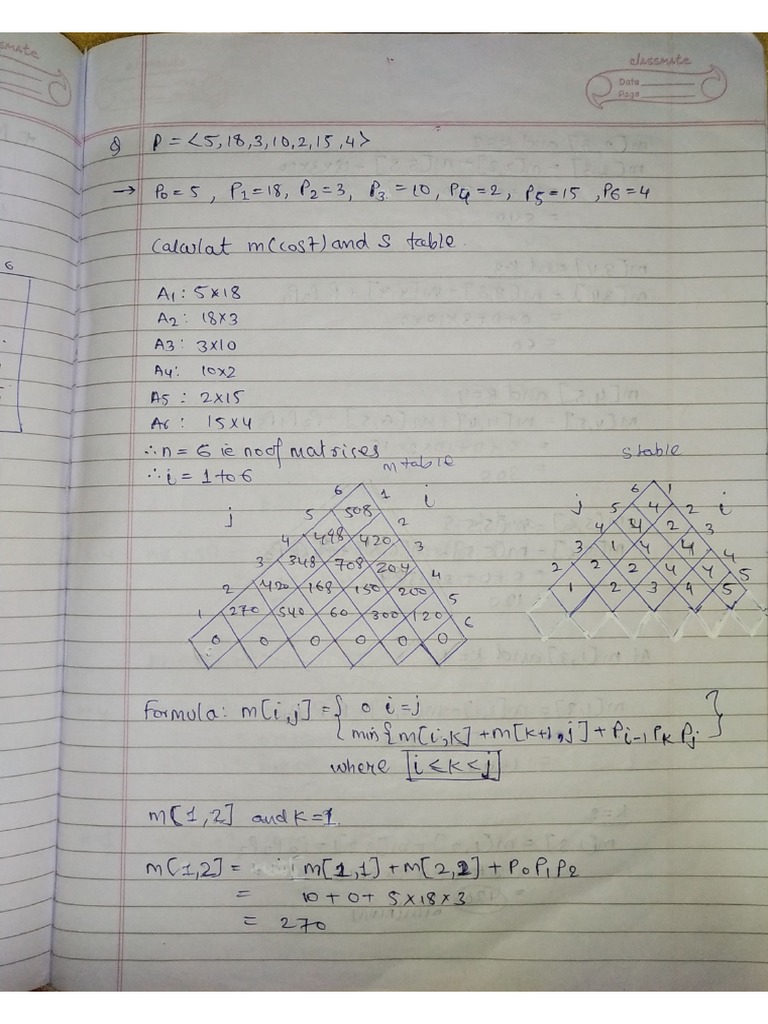 classmate
classmate
Date
Page
6
Q P = <5,18,3,10,2,15,4>
→ P0=5 , P1=18, P2=3, P3=10, P4=2, P5=15 ,P6=4
Calculat m(cost) and S table.
A1: 5×18
A2: 18×3
A3: 3×10
A4: 10×2
A5: 2×15
A6: 15×4
∴n= 6 ie no of matrises
∴i = 1 to 6
m table
6 1
j i
5 508 2
4 498 420 3
3 348 708 204 4
2 420 168 150 200 5
1 270 540 60 300 120 6
0 0 0 0 0 0
S table
6 1
j i
5 4 2
4 4 2 3
3 1 4 4 4
2 2 2 4 4 5
1 2 3 4 5
Formula: m[i,j] = { 0 i=j
min{m[i,k] +m[k+1,j] + Pi-1 Pk Pj }
where i≤k<j
m[1,2] and k=1.
m[1,2] = m[1,1] +m[2,2] + P0P1P2
= 10 + 0+ 5×18×3
= 270